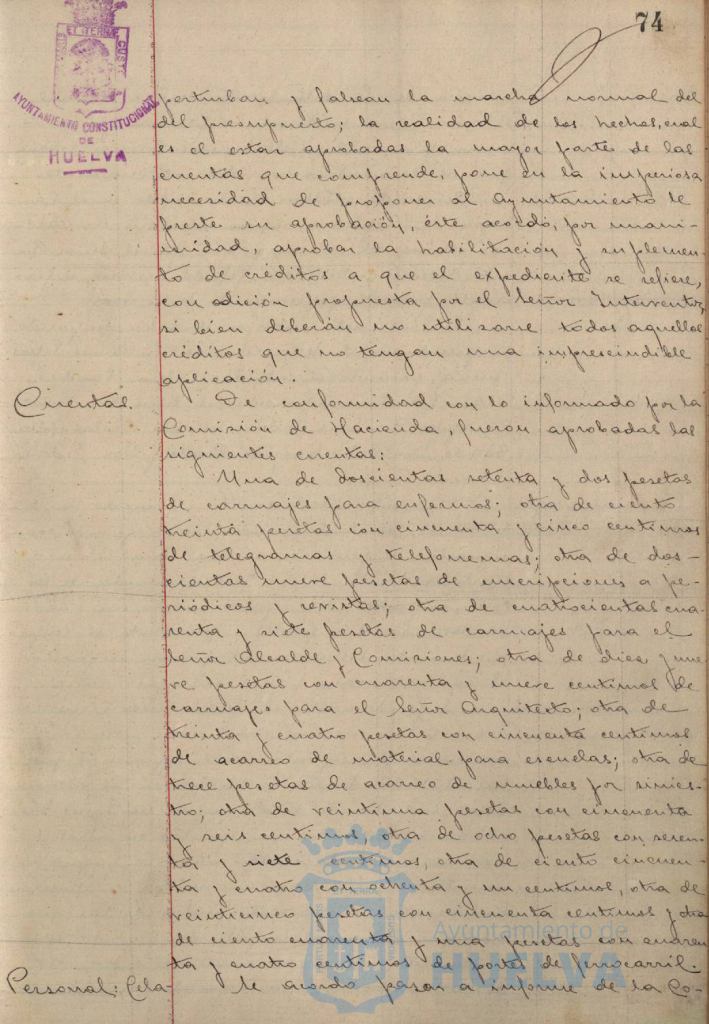 74
AYUNTAMIENTO CONSTITUCIONAL
DE
HUELVA
perturban y falsean la marcha normal del
del presupuesto; la realidad de los hechos, cual
es el estar aprobadas la mayor parte de las
cuentas que comprende, pone en la imperiosa
necesidad de proponer al Ayuntamiento le
preste su aprobación, éste acordó, por unani-
midad, aprobar la habilitación y suplemen-
to de créditos a que el expediente se refiere,
con adición propuesta por el Señor Interventor,
si bien deberán no utilizarse todos aquellos
créditos que no tengan una imprescindible
aplicación.
Cuentas.
De conformidad con lo informado por la
Comisión de Hacienda, fueron aprobadas las
siguientes cuentas:
Una de doscientas setenta y dos pesetas
de carruajes para enfermos; otra de ciento
treinta pesetas con cincuenta y cinco centimos
de telegramas y telefonemas; otra de dos-
cientas nueve pesetas de suscripciones a pe-
riódicos y revistas; otra de cuatrocientas cua-
renta y siete pesetas de carruajes para el
Señor Alcalde y Comisiones; otra de diez y nue
ve pesetas con cuarenta y nueve centimos de
carruajes para el Señor Arquitecto; otra de
treinta y cuatro pesetas con cincuenta centimos
de acarreo de material para escuelas; otra de
trece pesetas de acarreo de muebles por sinies-
tro; otra de veintiuna pesetas con cincuenta
y seis centimos, otra de ocho pesetas con sesen-
ta y siete centimos, otra de ciento cincuen-
ta y cuatro con ochenta y un centimos, otra de
veinticinco pesetas con cincuenta centimos y otra
de ciento cuarenta y una pesetas con cuaren
ta y cuatro centimos de portes de ferrocarril.
Personal: Cela-
Se acordó pasar a informe de la Co-
Ayuntamiento de
HUELVA